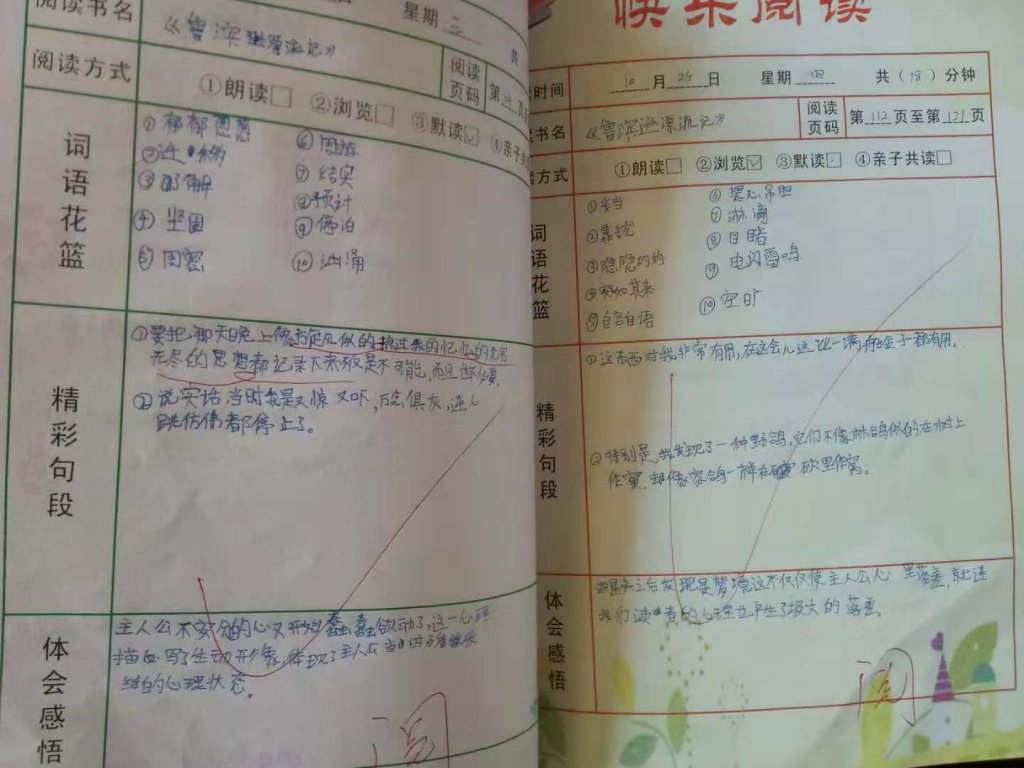 阅读书名
《鲁滨逊漂流记》
星期 三
共
阅读页码
第
阅读方式
①朗读□ ②浏览□ ③默读☑ ④亲子共
词语花篮
①郁郁葱葱
②迁移
③
④坚固
⑤周密
⑥周游
⑦结实
⑧预计
⑨停泊
⑩汹涌
精彩句段
①要把那天晚上像
无尽的思想都记录下来不仅是不可能,而且也不必要。
②说实话当时我是又惊又吓,万念俱灰,连心
跳仿佛都停止了。
体会感悟
主人公不安分的心又开始蠢蠢欲动了,这一心理
描写生动形象,体现了主人公当时矛盾
结的心理状态。
阅
快乐阅读
时间
10月24日 星期四 共(18)分钟
书名
《鲁滨逊漂流记》
阅读页码
第112页至第121页
方式
①朗读□ ②浏览☑ ③默读□ ④亲子共读□
词语花篮
①妥当
②
③隐隐约约
④突如其来
⑤自言自语
⑥
⑦淋漓
⑧目睹
⑨电闪雷鸣
⑩空旷
精彩句段
①这东西对我非常有用,在这会儿这比一满舟的金子都有用。
②特别是,我发现了一种野鸽,它们不像林鸽似的在树上
作窝,却像家鸽一样在 砍里作窝。
体会感悟
后发现是梦境这不仅仅使主人公心里落差,就连
我们读者的心理也产生了极大的落差。
阅